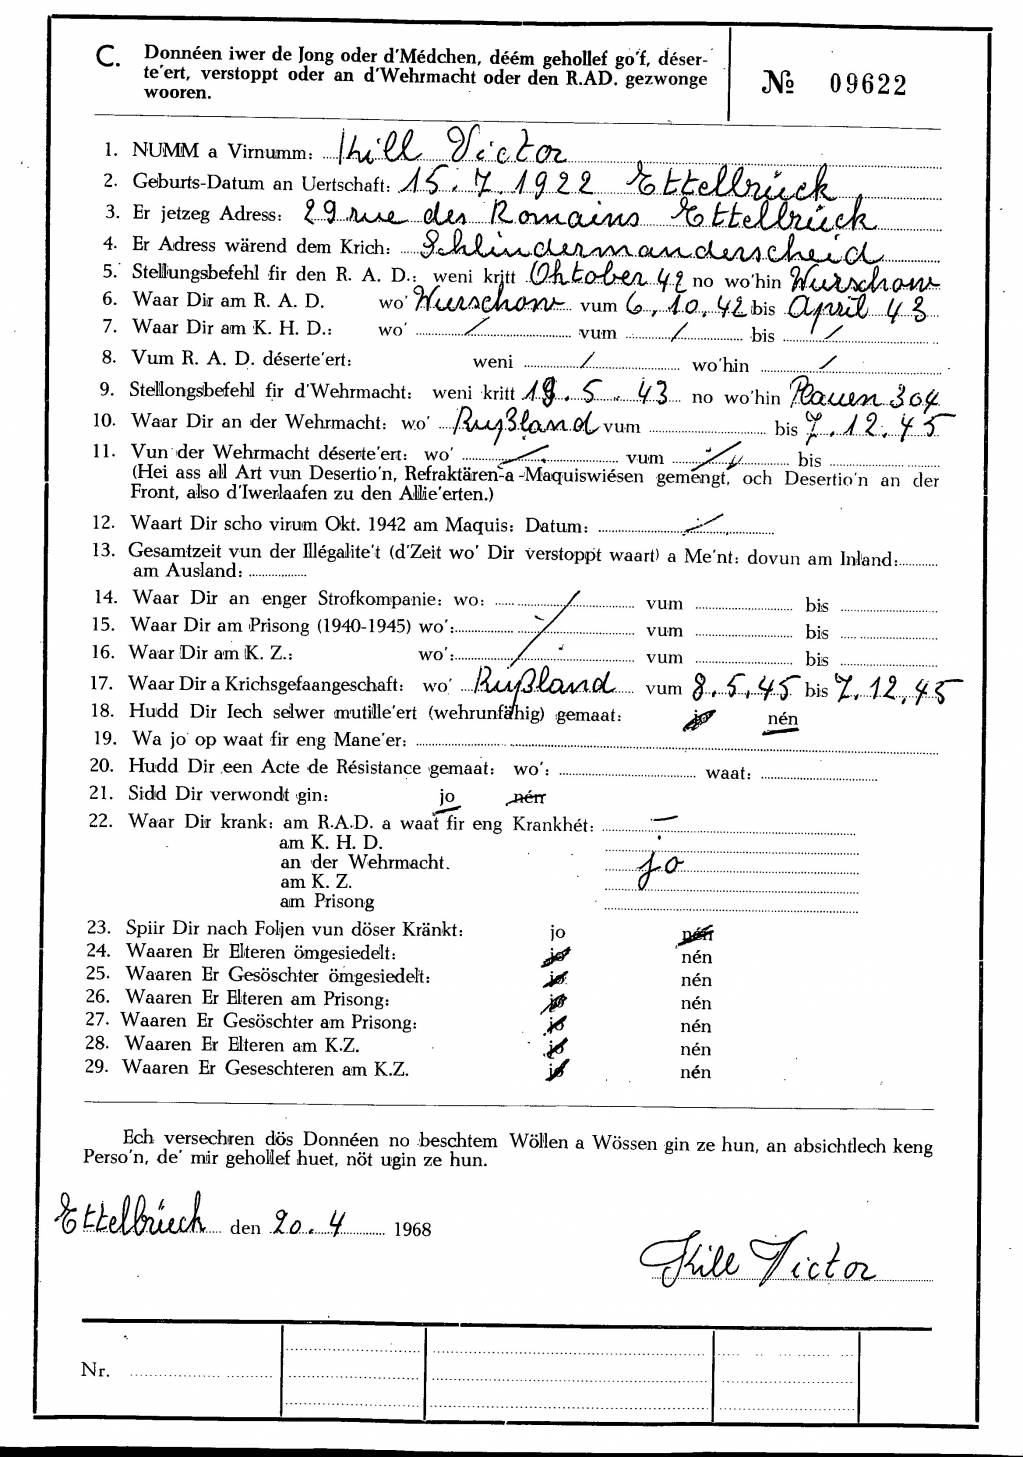 C. Donnéen iwer de Jong oder d'Médchen, déém gehollef go'f, déser-
te'ert, verstoppt oder an d'Wehrmacht oder den R.AD. gezwonge
wooren.
№ 09622
1. NUMM a Virnumm: Kill Victor
2. Geburts-Datum an Uertschaft: 15.7.1922 Ettelbrück
3. Er jetzeg Adress: 29 rue des Romains Ettelbrück
4. Er Adress wärend dem Krich: Schlindermanderscheid
5. Stellungsbefehl fir den R. A. D.: weni kritt Oktober 42 no wo'hin Wurschow
6. Waar Dir am R. A. D. wo' Wurschow vum 6.10.42 bis April 43
7. Waar Dir am K. H. D.: wo' / vum / bis /
8. Vum R. A. D. déserte'ert: weni / wo'hin /
9. Stellongsbefehl fir d'Wehrmacht: weni kritt 18.5.43 no wo'hin Plauen 304
10. Waar Dir an der Wehrmacht: wo' Rußland vum bis 7.12.45
11. Vun der Wehrmacht déserte'ert: wo' / vum / bis
(Hei ass all Art vun Desertio'n, Refraktären-a -Maquiswiésen gemengt, och Desertio'n an der
Front, also d'Iwerlaafen zu den Allie'erten.)
12. Waart Dir scho virum Okt. 1942 am Maquis: Datum: /
13. Gesamtzeit vun der Illégalite't (d'Zeit wo' Dir verstoppt waart) a Me'nt: dovun am Inland:
am Ausland:
14. Waar Dir an enger Strofkompanie: wo: / vum bis
15. Waar Dir am Prisong (1940-1945) wo': / vum bis
16. Waar Dir am K. Z.: wo': / vum bis
17. Waar Dir a Krichsgefaangeschaft: wo' Rußland vum 8.5.45 bis 7.12.45
18. Hudd Dir Iech selwer mutille'ert (wehrunfähig) gemaat: jo nén
19. Wa jo op waat fir eng Mane'er:
20. Hudd Dir een Acte de Résistance gemaat: wo': waat:
21. Sidd Dir verwondt gin: jo nén
22. Waar Dir krank: am R.A.D. a waat fir eng Krankhét: —
am K. H. D.
an der Wehrmacht. jo
am K. Z.
am Prisong
23. Spiir Dir nach Foljen vun döser Kränkt: jo nén
24. Waaren Er Elteren ömgesiedelt: jo nén
25. Waaren Er Gesöschter ömgesiedelt: jo nén
26. Waaren Er Elteren am Prisong: jo nén
27. Waaren Er Gesöschter am Prisong: jo nén
28. Waaren Er Elteren am K.Z. jo nén
29. Waaren Er Geseschteren am K.Z. jo nén
Ech versechren dös Donnéen no beschtem Wöllen a Wössen gin ze hun, an absichtlech keng
Perso'n, de' mir gehollef huet, nöt ugin ze hun.
Ettelbrück den 20.4 1968
Kill Victor
Nr.